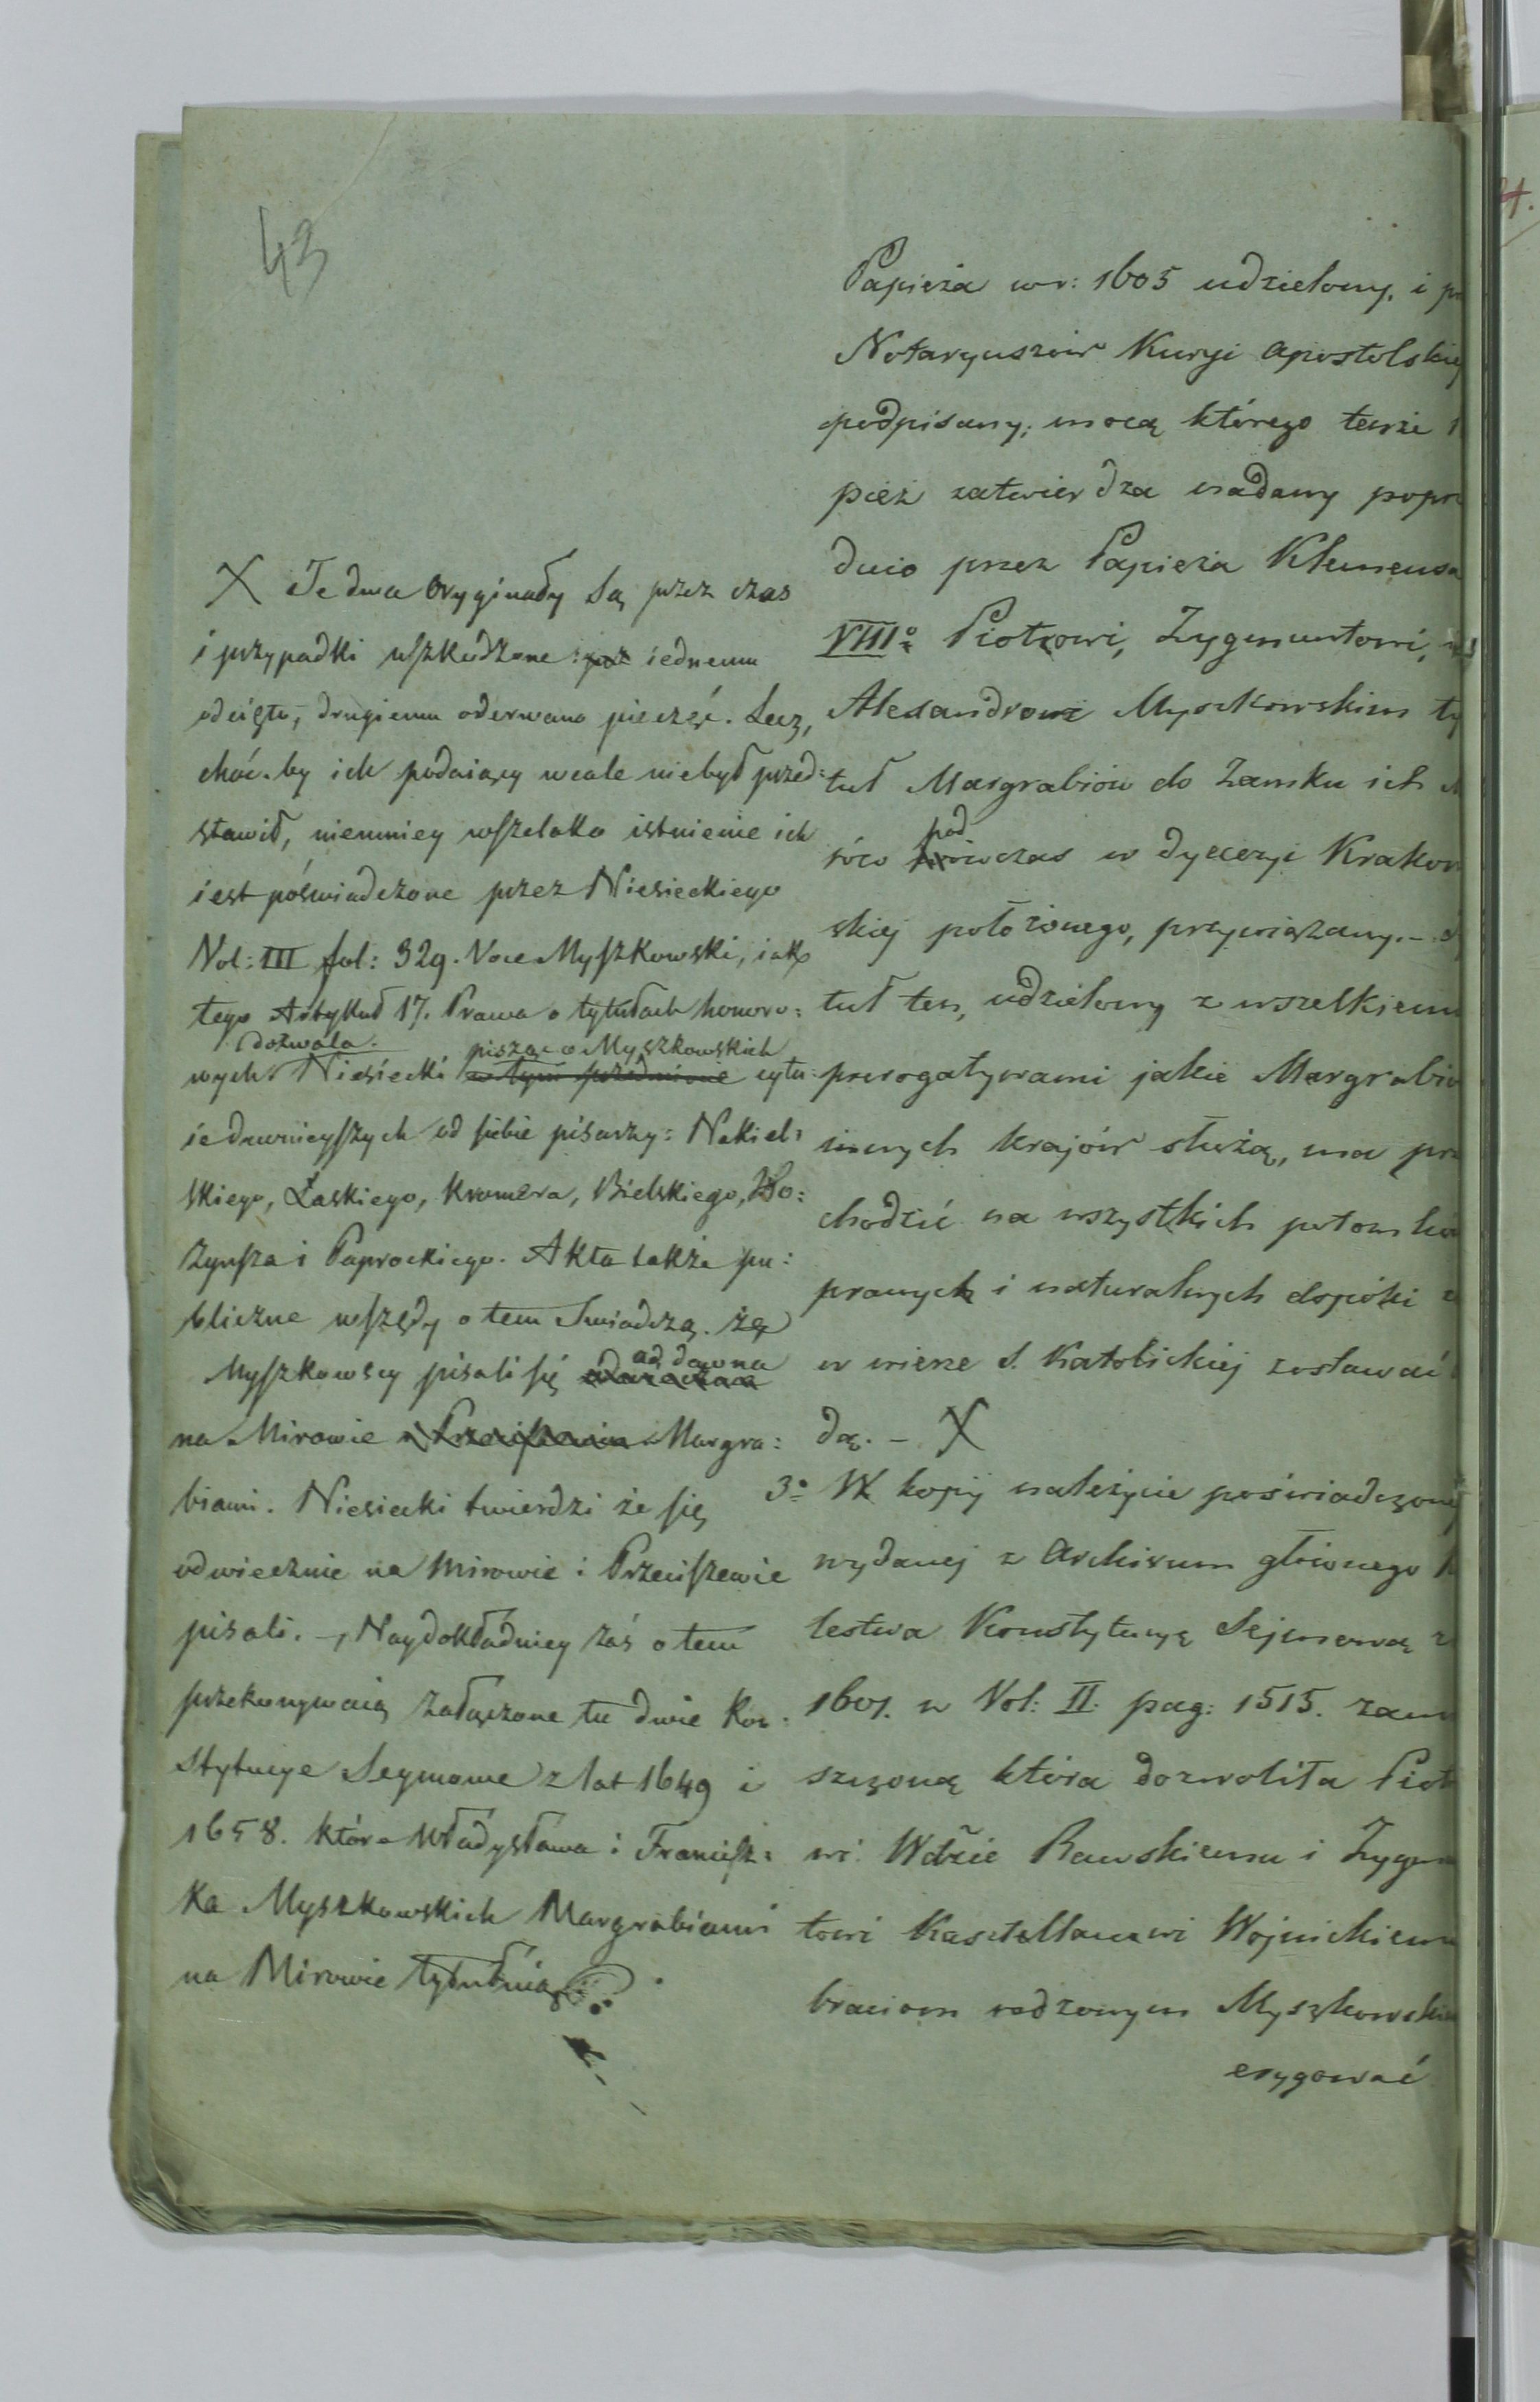 43
Papieża w r: 1605 udzielony, i
Notaryuszów Kuryi Apostolskiej
podpisany; mocą którego tenże
pież zatwierdza nadany poprz
dnio przez Papieża Klemensa
VIIIº Piotrowi, Zygmuntowi,
Alexandrowi Myszkowskim ty
tuł Margrabiów do Zamku ich
rów pod ówczas w dyecezyi Krakow
skiej położonego, przywiązany. –
tuł ten, udzielony z wszelkiemi
prerogatywami jakie Margrabio
innych krajów służą, ma prz
chodzić na wszystkich potomków
prawych i naturalnych dopóki
w wierze S. Katolickiej zostawać
dą. – X
3º W kopij należycie poświadczoney
wydanej z Archivum głównego
lestwa Konstytucyą Sejmową z
1601. w Vol: II. pag: 1515. zamie
szczoną która dozwoliła Piotro
wi Wdzie Rawskiemu i Zygmun
towi Kasztellanowi Wojnickiemu
braciom rodzonym Myszkowskim
erygować
X Te dwa Oryginały są przez czas
i przypadki uszkodzone: iednemu
odcięto, drugiemu oderwano pieczęć. Lecz,
choć-by ich podaiący wcale niebył przed:
stawił, niemniey wszelako istnienie ich
iest poświadczone przez Niesieckiego
Vol: III fol: 329. Voce Myszkowski, iako
tego Artykuł 17. Prawa o tytułach honoro:
dozwala. pisząc o Myszkowskich
wych. Niesiecki w tym przedmiocie cytu:
ie dawnieyszych od siebie pisarzy: Nakiel:
skiego, Łaskiego, Kromera, Bielskiego, Ho:
Zyusza i Paprockiego. Akta także pu:
bliczne wszędy o tem Świadczą. że
od dawna
Myszkowscy pisali się
na Mirowie Margra:
biami. Niesiecki twierdzi że się
odwiecznie na Mirowie i Przeciszewie
pisali. –, Naydokładniey zaś o tem
przekonywaią załączone tu dwie Kon:
stytucye Seymowe z lat 1649 i
1658. które Władysława i Francisz:
ka Myszkowskich Margrabiami
na Mirowie tytułuią.